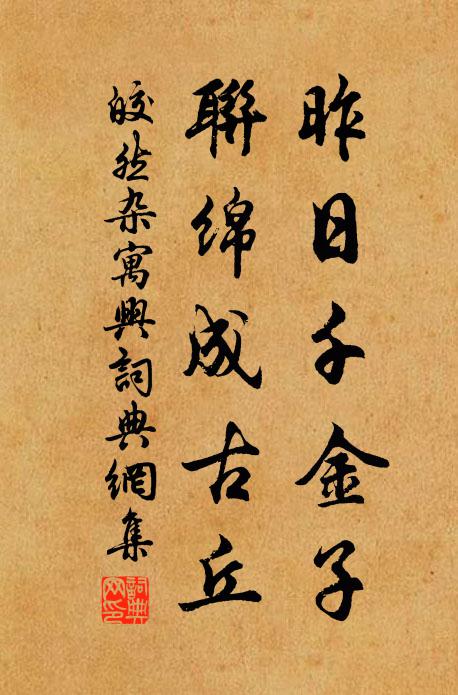 昨日千金子
聯绵成古丘
皎然杂寓興詞典網集
詞典网印